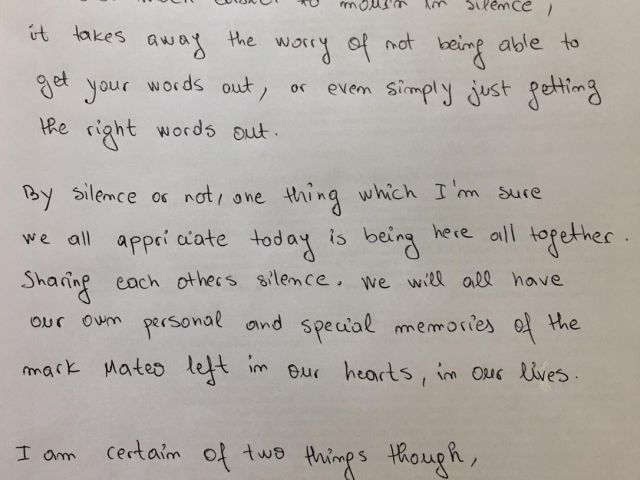 to mourn in silence,
it takes away the worry of not being able to
get your words out, or even simply just getting
the right words out.
By silence or not, one thing which I'm sure
we all appriciate today is being here all together.
Sharing each others silence. We will all have
our own personal and special memories of the
mark Mateo left in our hearts, in our lives.
I am certain of two things though,